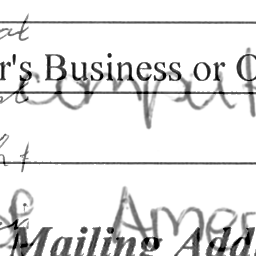 at
r's Business or O
comput
ht
of Amer
Mailing Add